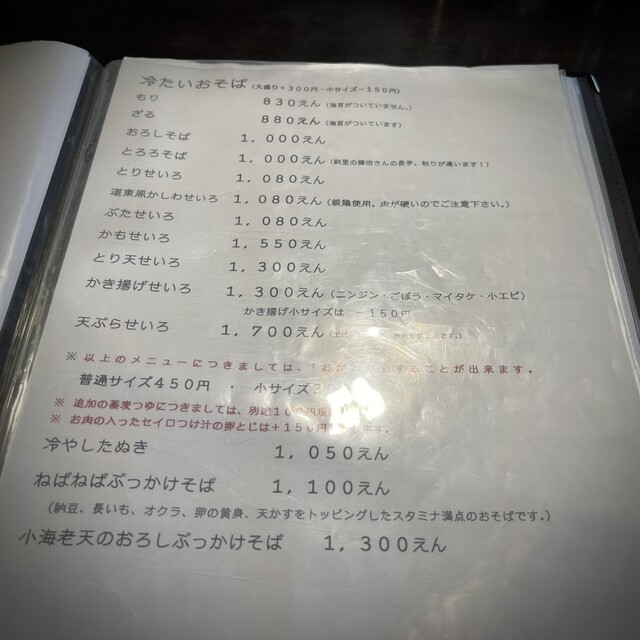 冷たいおそば（大盛り＋300円・小サイズ－150円）
もり 830えん（海苔がついていません。）
ざる 880えん（海苔がついています）
おろしそば 1,000えん
とろろそば 1,000えん（斜里の篠田さんの長芋。粘りが違います！）
とりせいろ 1,080えん
道東風かしわせいろ 1,080えん（親鶏使用。肉が硬いのでご注意下さい。）
ぶたせいろ 1,080えん
かもせいろ 1,550えん
とり天せいろ 1,300えん
かき揚げせいろ 1,300えん（ニンジン・ごぼう・マイタケ・小エビ）
かき揚げ小サイズは －150円
天ぷらせいろ 1,700えん（エビ です。）
※以上のメニューにつきましては、「おか することが出来ます。
普通サイズ450円 ・ 小サイズ3
※ 追加の蕎麦つゆにつきましては、別途10 円頂
※ お肉の入ったセイロつけ汁の卵とじは＋150円 ます。
冷やしたぬき 1,050えん
ねばねばぶっかけそば 1,100えん
（納豆、長いも、オクラ、卵の黄身、天かすをトッピングしたスタミナ満点のおそばです。）
小海老天のおろしぶっかけそば 1,300えん